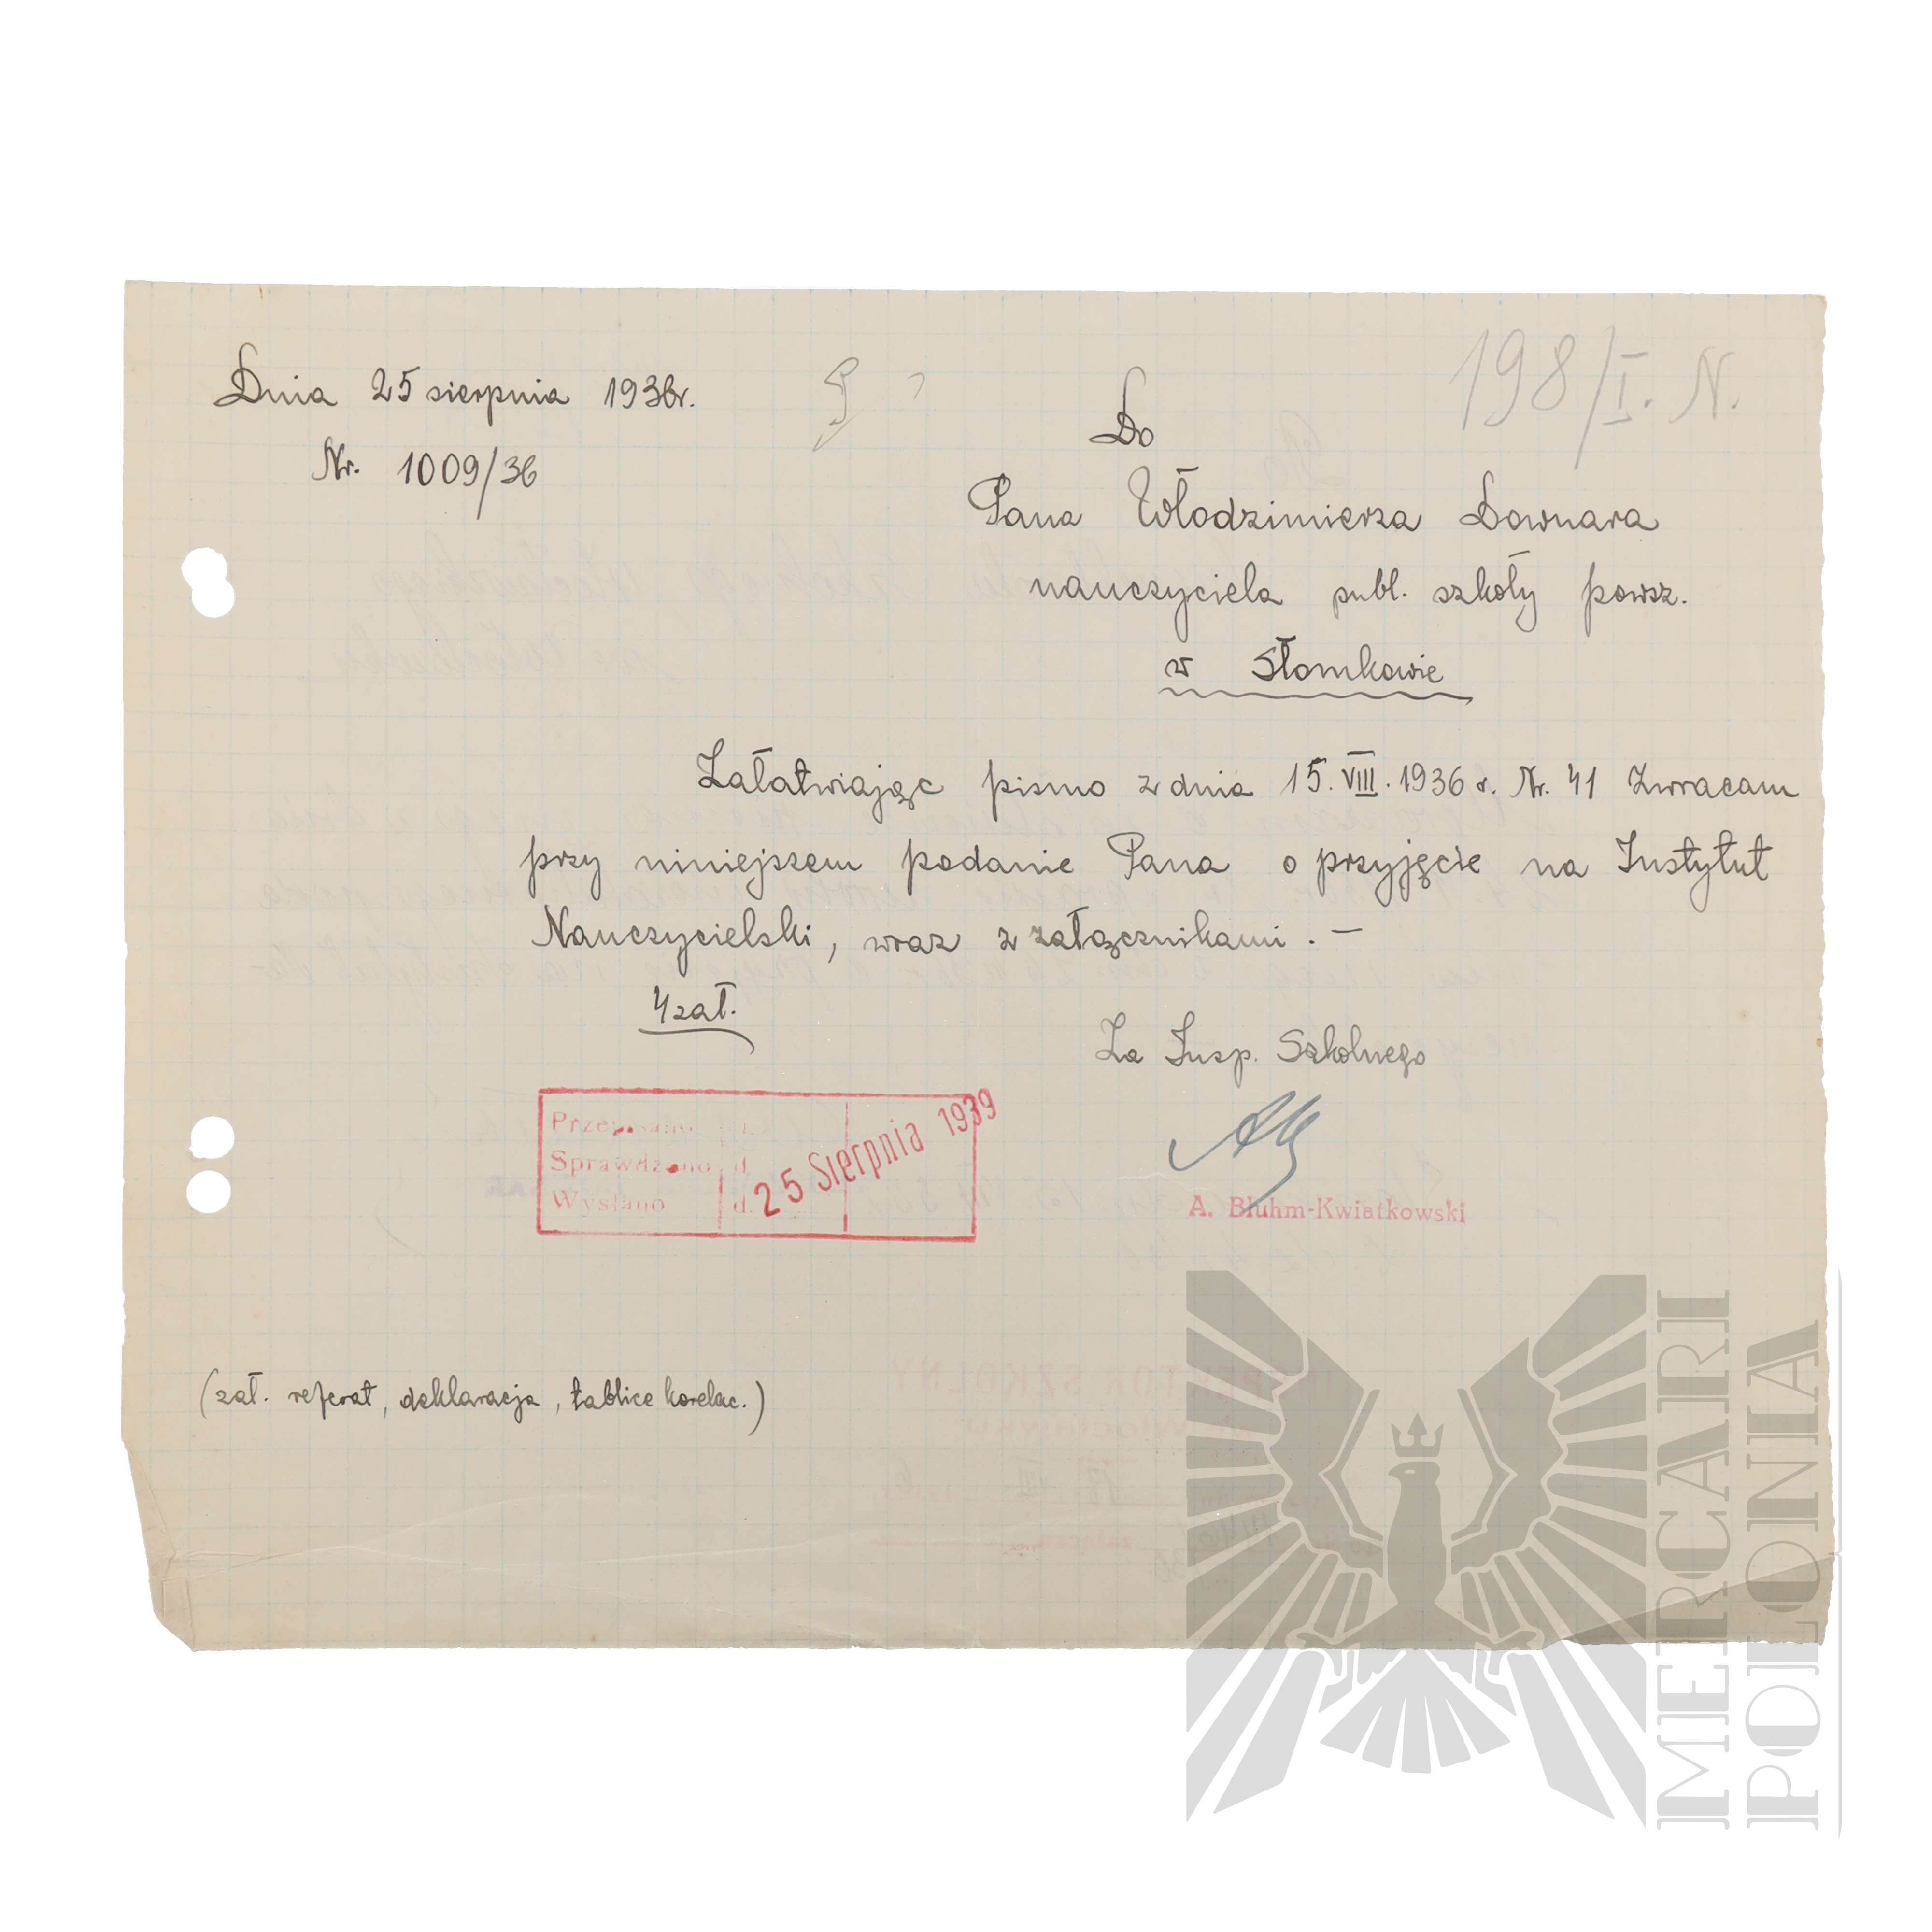 198/I. N.
Dnia 25 sierpnia 1936r.
Nr. 1009/36
Do
Pana Włodzimierza Downara
nauczyciela publ. szkoły powsz.
w Słomkowie
Załatwiając pismo z dnia 15.VIII.1936 r. Nr. 41 zwracam
przy niniejszem podanie Pana o przyjęcie na Instytut
Nauczycielski, wraz z załącznikami. –
4 zał.
Za Insp. Szkolnego
A. Bluhm-Kwiatkowski
Przepisano d.
Sprawdzono d.
Wysłano d.
25 Sierpnia 1939
(zał. referat, deklaracja, tablice korelac.)
MERCARI
POLONIA